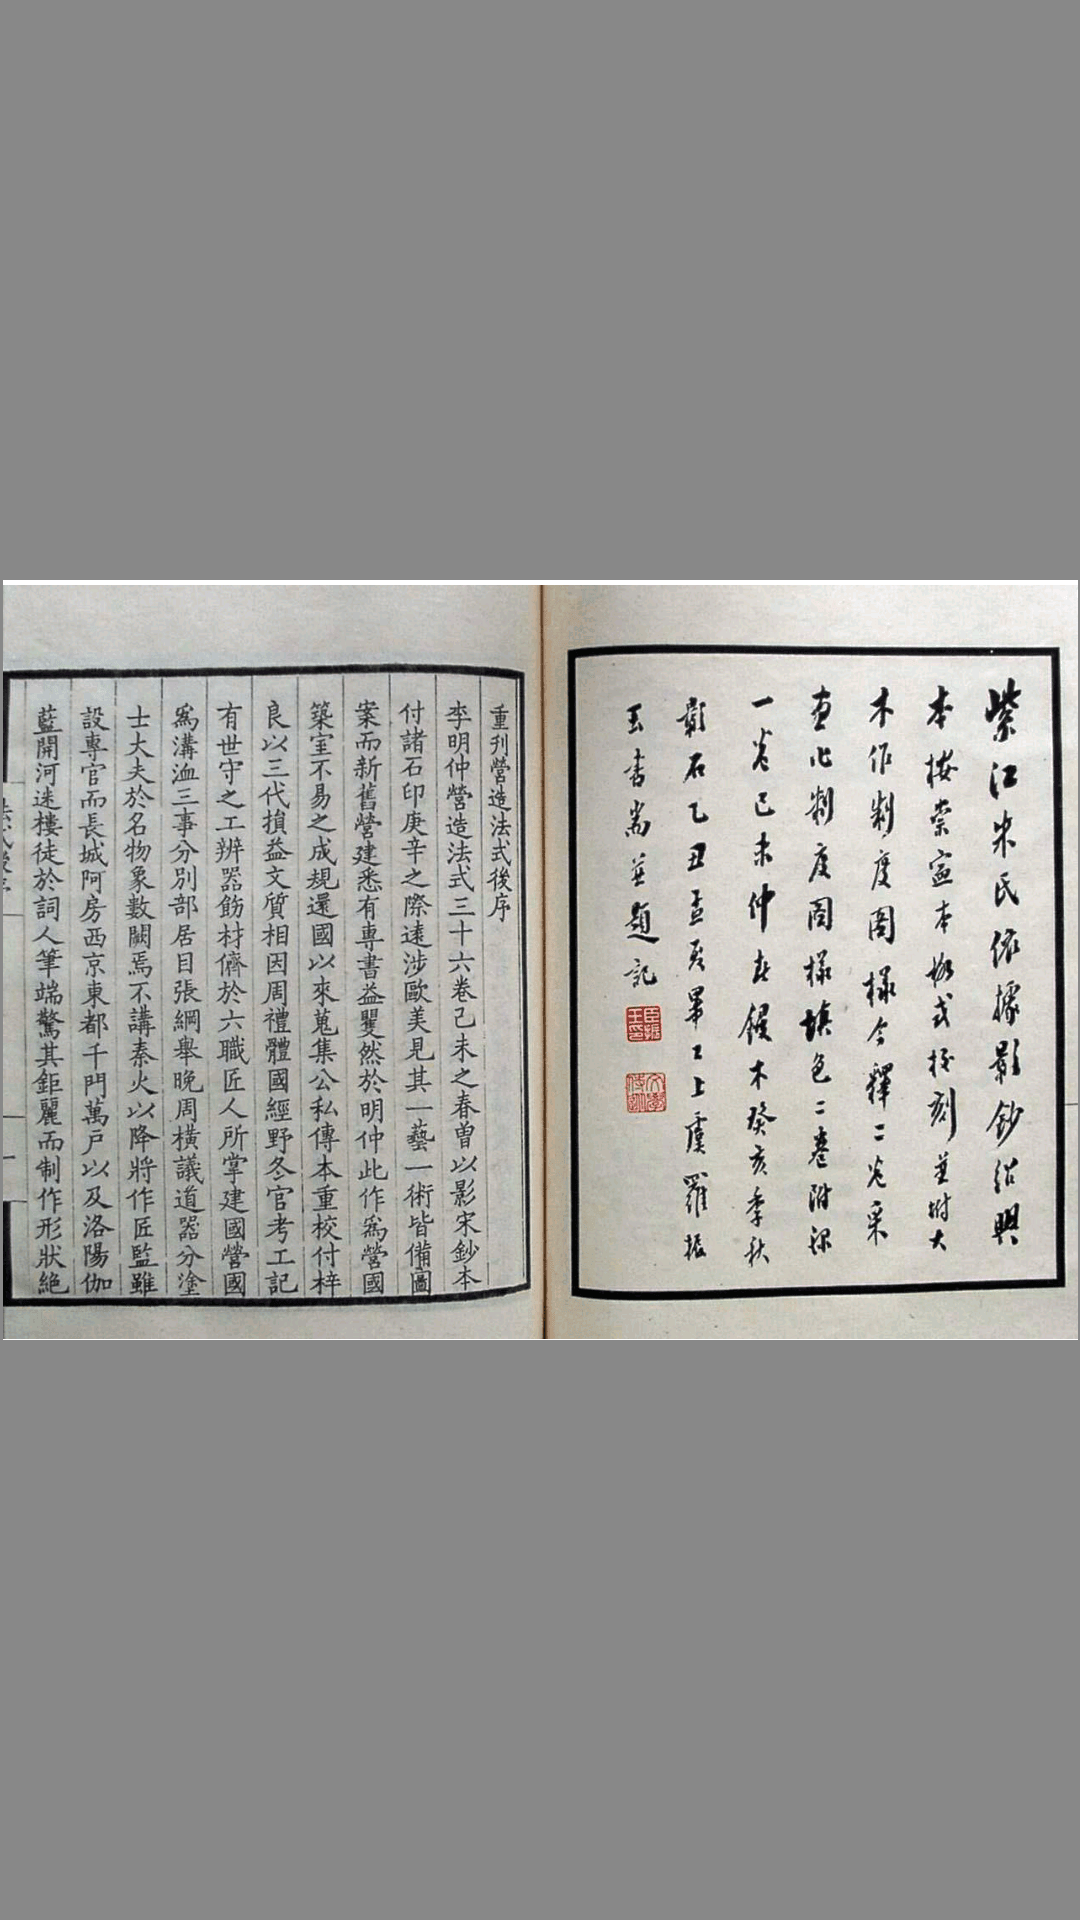 紫江朱氏依據影鈔紹興
本按崇寧本格式校刻並附大
木作制度圖樣今釋二卷采
畫作制度圖樣填色二卷附錄
一卷己未仲春鋟木癸亥季秋
彰石乙丑孟夏畢工上虞羅振
玉書耑並題記
重刋營造法式後序
李明仲營造法式三十六卷己未之春曽以影宋鈔本
付諸石印庚辛之際遠涉歐美見其一藝一術皆備圖
案而新舊營建悉有專書益瞿然於明仲此作爲營國
築室不易之成規還國以來蒐集公私傳本重校付梓
良以三代損益文質相因周禮體國經野冬官考工記
有世守之工辨器飭材儕於六職匠人所掌建國營國
爲溝洫三事分別部居目張綱舉晚周橫議道器分塗
士大夫於名物象數闕焉不講秦火以降將作匠監雖
設專官而長城阿房西京東都千門萬戶以及洛陽伽
藍開河迷樓徒於詞人筆端驚其鉅麗而制作形狀絕